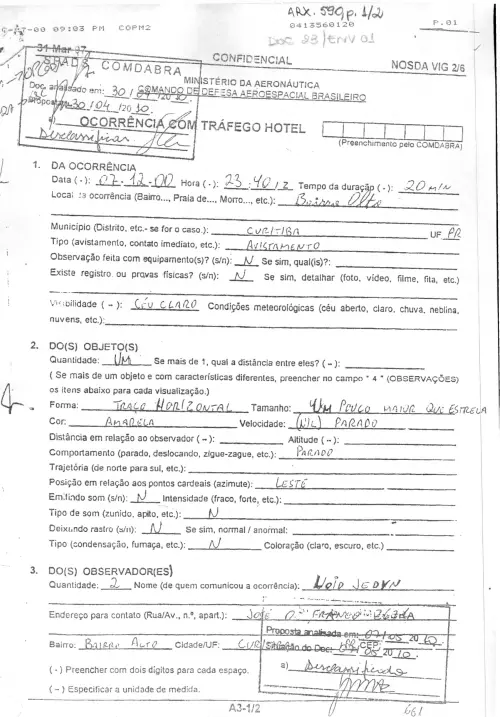 09:03 PM COPM2
0413560120
P.01
CONFIDENCIAL
NOSDA VIG 2/6
COMDABRA
MINISTÉRIO DA AERONÁUTICA
COMANDO DE DEFESA AEROESPACIAL BRASILEIRO
OCORRÊNCIA COM TRÁFEGO HOTEL
(Preenchimento pelo COMDABRA)
1. DA OCORRÊNCIA
Data ( - ): 07-12-00 Hora ( - ): 23:40 / Z Tempo da duração ( - ): 20 min
Local da ocorrência (Bairro..., Praia de..., Morro..., etc.): Bairro Alto
Município (Distrito, etc.- se for o caso.): CURITIBA UF PR
Tipo (avistamento, contato imediato, etc.): AVISTAMENTO
Observação feita com equipamento(s)? (s/n): N Se sim, qual(is)?:
Existe registro ou provas físicas? (s/n): N Se sim, detalhar (foto, vídeo, filme, fita, etc.)
Visibilidade ( ~ ): CÉU CLARO Condições meteorológicas (céu aberto, claro, chuva, neblina,
nuvens, etc.):
2. DO(S) OBJETO(S)
Quantidade: UM Se mais de 1, qual a distância entre eles? ( ~ ):
( Se mais de um objeto e com características diferentes, preencher no campo " 4 " (OBSERVAÇÕES)
os itens abaixo para cada visualização.)
Forma: TRAÇO HORIZONTAL Tamanho: UM POUCO MAIOR QUE ESTRELA
Cor: AMARELA Velocidade: (NIL) PARADO
Distância em relação ao observador ( ~ ): Altitude ( ~ ):
Comportamento (parado, deslocando, zigue-zague, etc.): PARADO
Trajetória (de norte para sul, etc.):
Posição em relação aos pontos cardeais (azimute): LESTE
Emitindo som (s/n): N Intensidade (fraco, forte, etc.):
Tipo de som (zunido, apito, etc.): N
Deixando rastro (s/n): N Se sim, normal / anormal:
Tipo (condensação, fumaça, etc.): N Coloração (claro, escuro, etc.)
3. DO(S) OBSERVADOR(ES)
Quantidade: 2 Nome (de quem comunicou a ocorrência):
Endereço para contato (Rua/Av., n.º, apart.): JOSÉ
Proposta analisada em: 07/05 20
Bairro: BAIRRO ALTO Cidade/UF: CEP:
Situação do Doc:
a) Desclassificado
( - ) Preencher com dois dígitos para cada espaço.
( ~ ) Especificar a unidade de medida.
A3-1/2